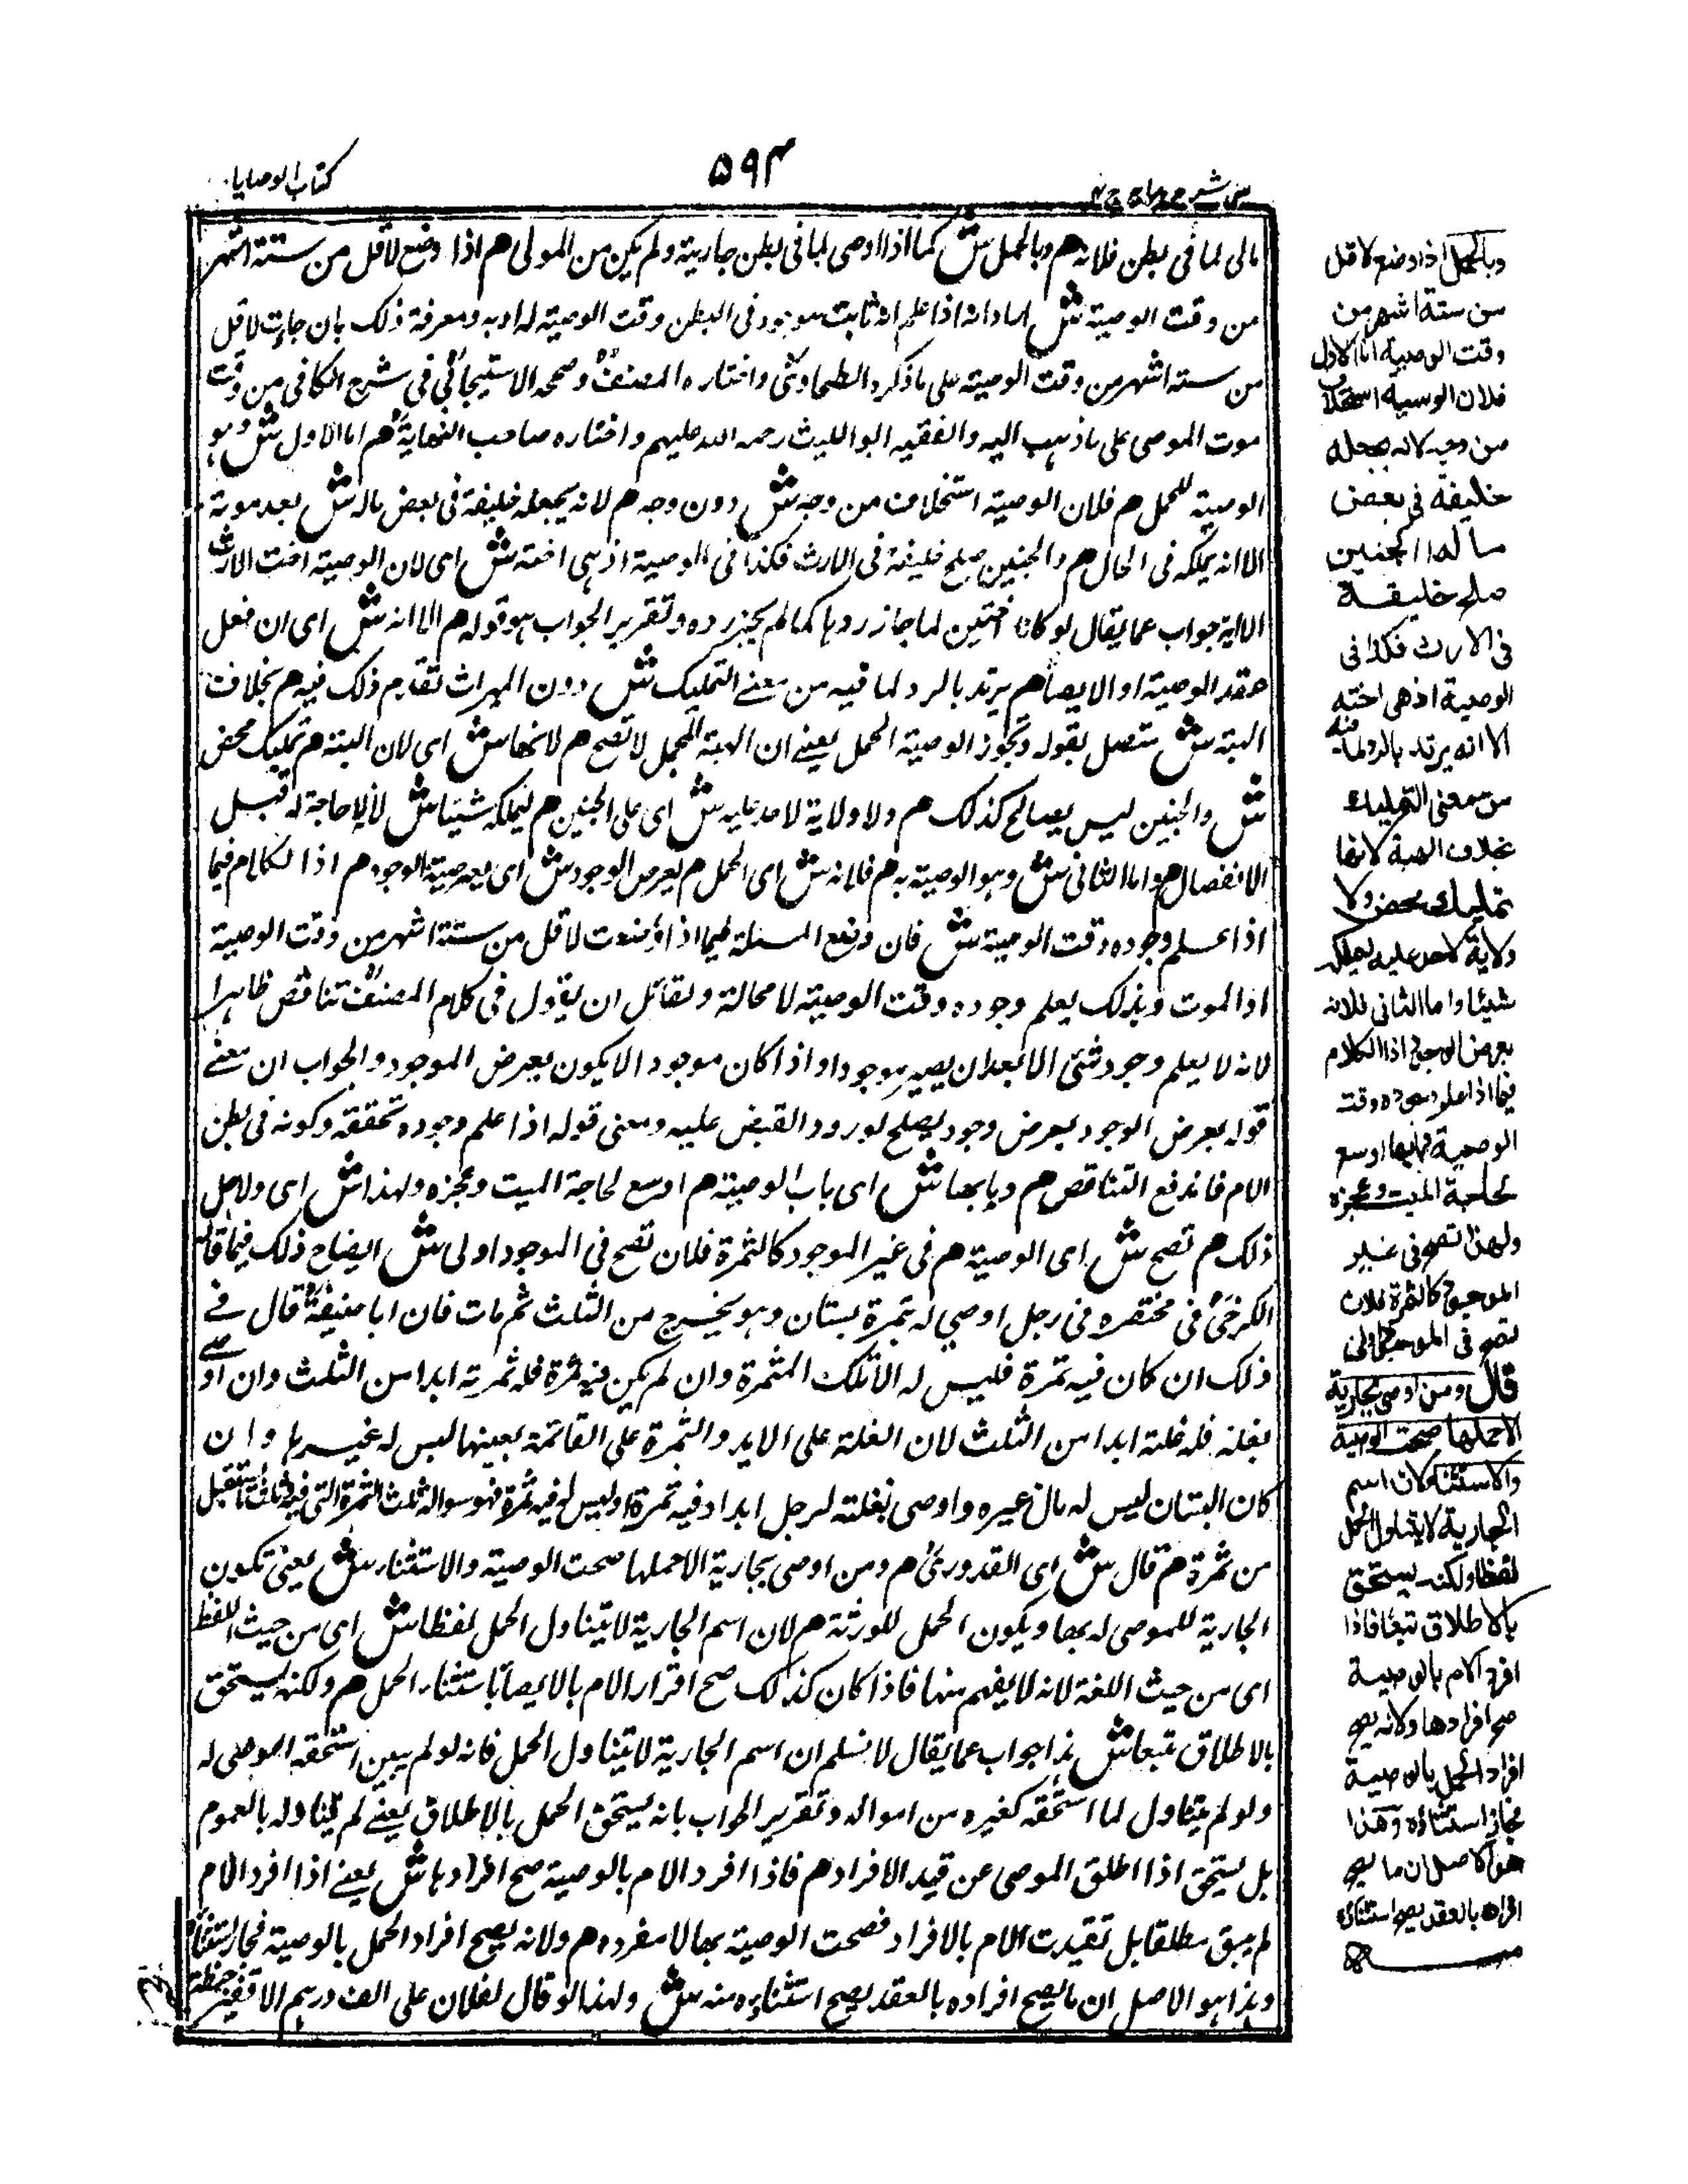 كتاب الوصايا
۵۹۳
مالى لما فى بطن فلانة هم وبالحمل ش كما اذا اوصى لما فى بطن جارية ولم يكن من المولى هم اذا وضع لاقل من ستة اشهر
من وقت الوصية ش اذا علم انه ثابت موجود فى البطن وقت الوصية له او به ومعرفة ذلك بان جاءت لاقل
من ستة اشهر من وقت الوصية على ما ذكره الطحاوى واختاره المصنف وصححه الاسبيجابى فى شرح الكافى من وقت
موت الموصى على ما ذهب اليه والفقيه ابو الليث رحمة الله عليهم واختاره صاحب النهاية هم اما الاول ش وهو
الوصية للحمل هم فلان الوصية استخلاف من وجه ش دون وجه هم لانه يجعله خليفة فى بعض ماله ش بعد موته
لا انه يملكه فى الحال هم والجنين صلح خليفة فى الارث فكذا فى الوصية اذ هى اخته ش اى لان الوصية اخت الارث
جواب عما يقال لو كانا اختين لما جاز ردها كما لم يجز رده وتقرير الجواب هو قوله هم الا انه ش اى ان فعل
عقد الوصية او الايصاء هم يرتد بالرد لما فيه من معنے التمليك ش دون الميراث تقدم ذلك فيه هم بخلاف
الهبة ش متصل بقوله وتجوز الوصية للحمل يعنے ان الهبة للحمل لا تصح هم لانها ش اى لان الهبة هم تمليك محض
ش والجنين ليس يصالح كذلك هم ولا ولاية لاحد عليه ش اى على الجنين هم ليملكه شيئا ش لانه لا حاجة له قبل
الانفصال هم واما الثانى ش وهو الوصية به هم فلانه ش اى الحمل هم بعرض الوجود ش اى بعرضية الوجود هم اذ الكلام فيما
اذا علم وجوده وقت الوصية ش فان وضع المسئلة فيما اذا وضعت لاقل من ستة اشهر من وقت الوصية
او الموت وبذلك يعلم وجوده وقت الوصية لا محالة ولقائل ان يقول فى كلام المصنف تناقض ظاهرا
لانه لا يعلم وجود شئ الا بعد ان يصير موجودا واذا كان موجودا لا يكون بعرض الموجود والجواب ان معنے
قوله بعرض الوجود بعرض وجود يصلح لورود القبض عليه ومعنى قوله اذا علم وجوده تحققه وكونه فى بطن
الام فاندفع التناقص هم وبابها ش اى باب الوصية هم اوسع لحاجة الميت وعجزه ولهذا ش اى ولاجل
ذلك هم تصح ش اى الوصية هم فى غير الموجود كالثمرة فلان تصح فى الموجود اولى ش ايضاح ذلك فيما قاله
الكرخى فى مختصره فى رجل اوصى له بثمرة بستان وهو يخرج من الثلث ثم مات فان ابا حنيفة قال فے
ذلك ان كان فيه ثمرة فليس له الا تلك الثمرة وان لم يكن فيه ثمرة فله ثمرته ابدا من الثلث وان اوصے
بغلته فله غلته ابدا من الثلث لان الغلة على الابد والثمرة على القائمة بعينها ليس له غيرها وان
كان البستان ليس له مال غيره واوصى بغلته لرجل ابدا وفيه ثمرة او ليس فيه ثمرة فهو سواء له ثلث الثمرة التى فيه
من ثمرة هم قال ش اى القدورى هم ومن اوصى بجارية الا حملها صحت الوصية والاستثناء ش يعنى تكون
الجارية للموصى له بها ويكون الحمل للورثة هم لان اسم الجارية لا يتناول الحمل لفظا ش اى من حيث اللفظ
اى من حيث اللغة لانه لا يفهم منها فاذا كان كذلك صح افراد الام بالايصاء باستثناء الحمل هم ولكنه يستحق
بالاطلاق تبعا ش هذا جواب عما يقال لا نسلم ان اسم الجارية لا يتناول الحمل فانه لو لم يبين استحقه الموصى له
ولو لم يتناول لما استحقه كغيره من امواله وتقرير الجواب بانه يستحق الحمل بالاطلاق يعنے لم يتناوله بالعموم
بل يستحق اذا اطلق الموصى عن قيد الافراد هم فاذا افرد الام بالوصية صح افرادها ش يعنے اذا افرد الام
لم يبق مطلقا بل تقيدت الام بالافراد فصحت الوصية بها لا مفرده هم ولانه يصح افراد الحمل بالوصية فجاز استثناؤه
وهذا هو الاصل ان ما يصح افراده بالعقد يصح استثناؤه منه ش ولهذا لو قال لفلان على الف درهم الا قفيز حنطة
وبالحمل اذا وضع لاقل
من ستة اشهر من
وقت الوصية اما الاول
فلان الوصية استخلاف
من وجه لانه يجعله
خليفة فى بعض
ماله والجنين
صلح خليفة
فى الارث فكذا فى
الوصية اذ هى اخته
الا انه يرتد بالرد لما فيه
من معنى التمليك
بخلاف الهبة لانها
تمليك محض ولا
ولاية لاحد عليه ليملكه
شيئا واما الثانى فلانه
بعرض الوجود اذ الكلام
فيما اذا علم وجوده وقت
الوصية وبابها اوسع
لحاجة الميت وعجزه
ولهذا تصح فى غير
الموجود كالثمرة فلان
تصح فى الموجود اولى
قال ومن اوصى بجارية
الا حملها صحت الوصية
والاستثناء لان اسم
الجارية لا يتناول الحمل
لفظا ولكنه يستحق
بالاطلاق تبعا فاذا
افرد الام بالوصية
صح افرادها ولانه يصح
افراد الحمل بالوصية
فجاز استثناؤه وهذا
هو الاصل ان ما يصح
افراده بالعقد يصح استثناؤه